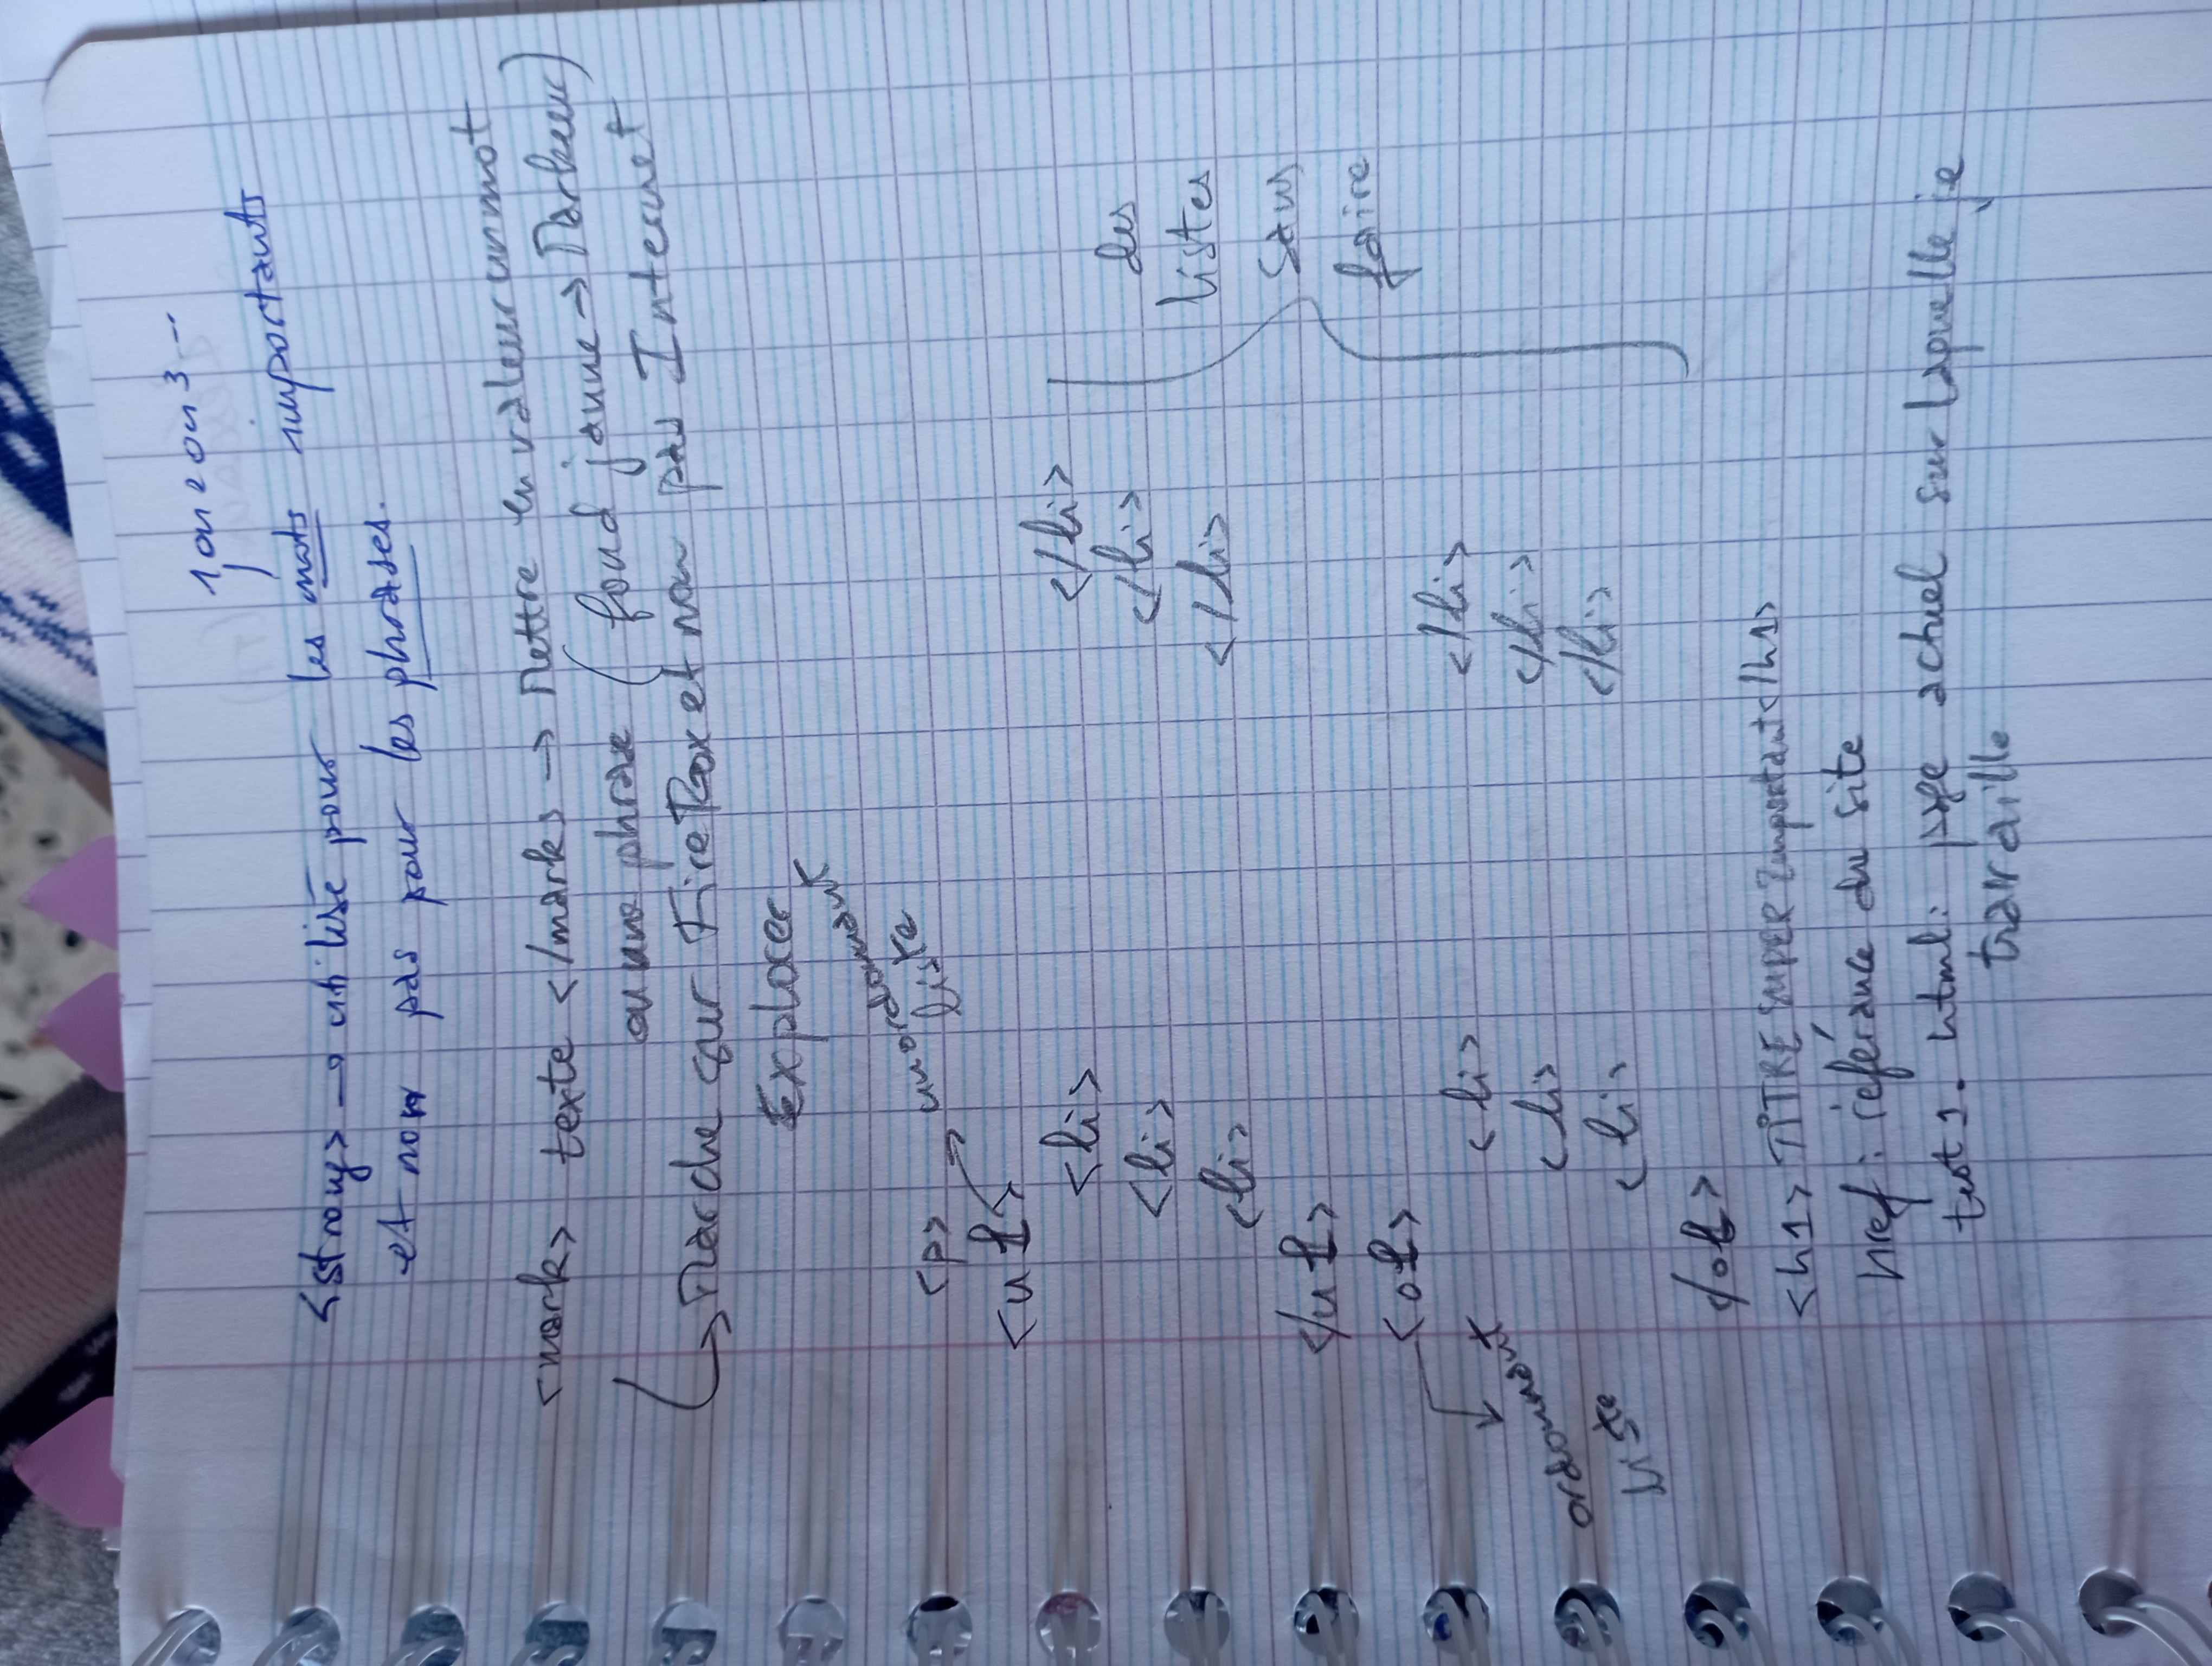 <strong> → utilisé pour les mots importants
et non pas pour les phrases.
<mark> texte </mark> → Mettre en valeur un mot
ou une phrase (fond jaune → Markeur)
↳ Marche sur FireFox et non pas Internet
Exploer
<p>
unordonnant
liste
<ul>
<li> </li>
<li> </li>
<li> </li>
</ul>
<ol>
ordonnant
liste
<li> </li>
<li> </li>
<li> </li>
</ol>
des
listes
Sans
faire
<h1> TITRE SUPER Important </h1>
href : référance du site
test1.html : page actuel sur laquelle je
travaille